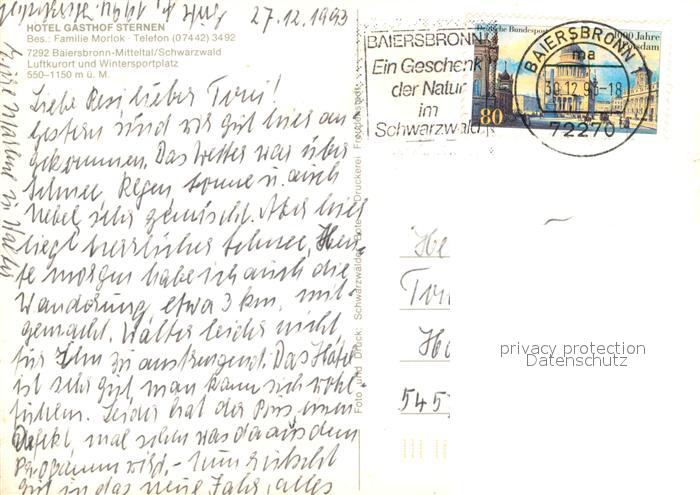 27.12.1993
HOTEL GASTHOF STERNEN
Bes.: Familie Morlok · Telefon (07442) 3492
7292 Baiersbronn-Mitteltal/Schwarzwald
Luftkurort und Wintersportplatz
550–1150 m ü. M.
Liebe Resi, lieber Toni!
Gestern sind wir gut hier an
gekommen. Das Wetter war über
Schnee, Regen, Sonne u. auch
Nebel sehr gemischt. Aber hier
liegt herrlicher Schnee, Heu-
te morgen habe ich auch die
Wanderung, etwa 3 km, mit-
gemacht. Walter leider nicht
für Ihn zu anstrengend. Das Hotel
ist sehr gut, man kann sich wohl-
fühlen. Leider hat der Bus einen
Defekt, mal sehen was da aus dem
Programm wird. – Nun
gut in das neue Jahr, alles
Foto und Druck: Schwarzwälder Bote Druckerei Freudenstadt
BAIERSBRONN
Ein Geschenk
der Natur
im
Schwarzwald
Deutsche Bundespost
1000 Jahre
Potsdam
80
BAIERSBRONN 1
ma
30.12.93-18
72270
He
Toni
Ha
545
privacy protection
Datenschutz